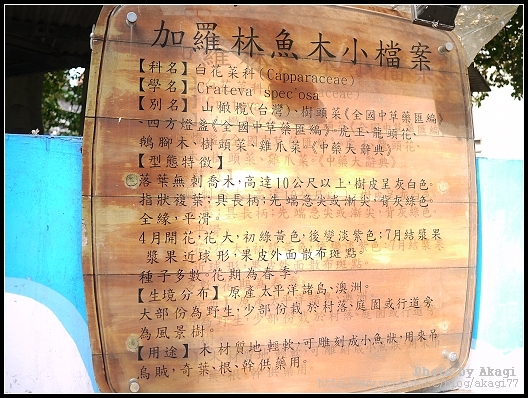 加羅林魚木小檔案
【科名】白花菜科(Capparaceae)
【學名】Crateva spec'osa
【別名】山橄欖(台灣)、樹頭菜《全國中草藥匯編》
、四方燈盞《全國中草藥匯編》、虎王、龍頭花、
鵝腳木、樹頭菜、雞爪菜《中藥大辭典》
【型態特徵】
落葉無刺喬木,高達10公尺以上,樹皮呈灰白色。
指狀複葉;具長柄;先端急尖或漸尖,背灰綠色。
全緣,平滑。
4月開花,花大,初綠黃色,後變淡紫色;7月結漿果
漿果近球形,果皮外面散布斑點。
種子多數。花期為春季。
【生境分布】原產太平洋諸島、澳洲。
大部份為野生,少部份栽於村落、庭園或行道旁
為風景樹。
【用途】木材質地輕軟,可雕刻成小魚狀,用來吊
烏賊,奇葉、根、幹供藥用。
Photo by Akagi